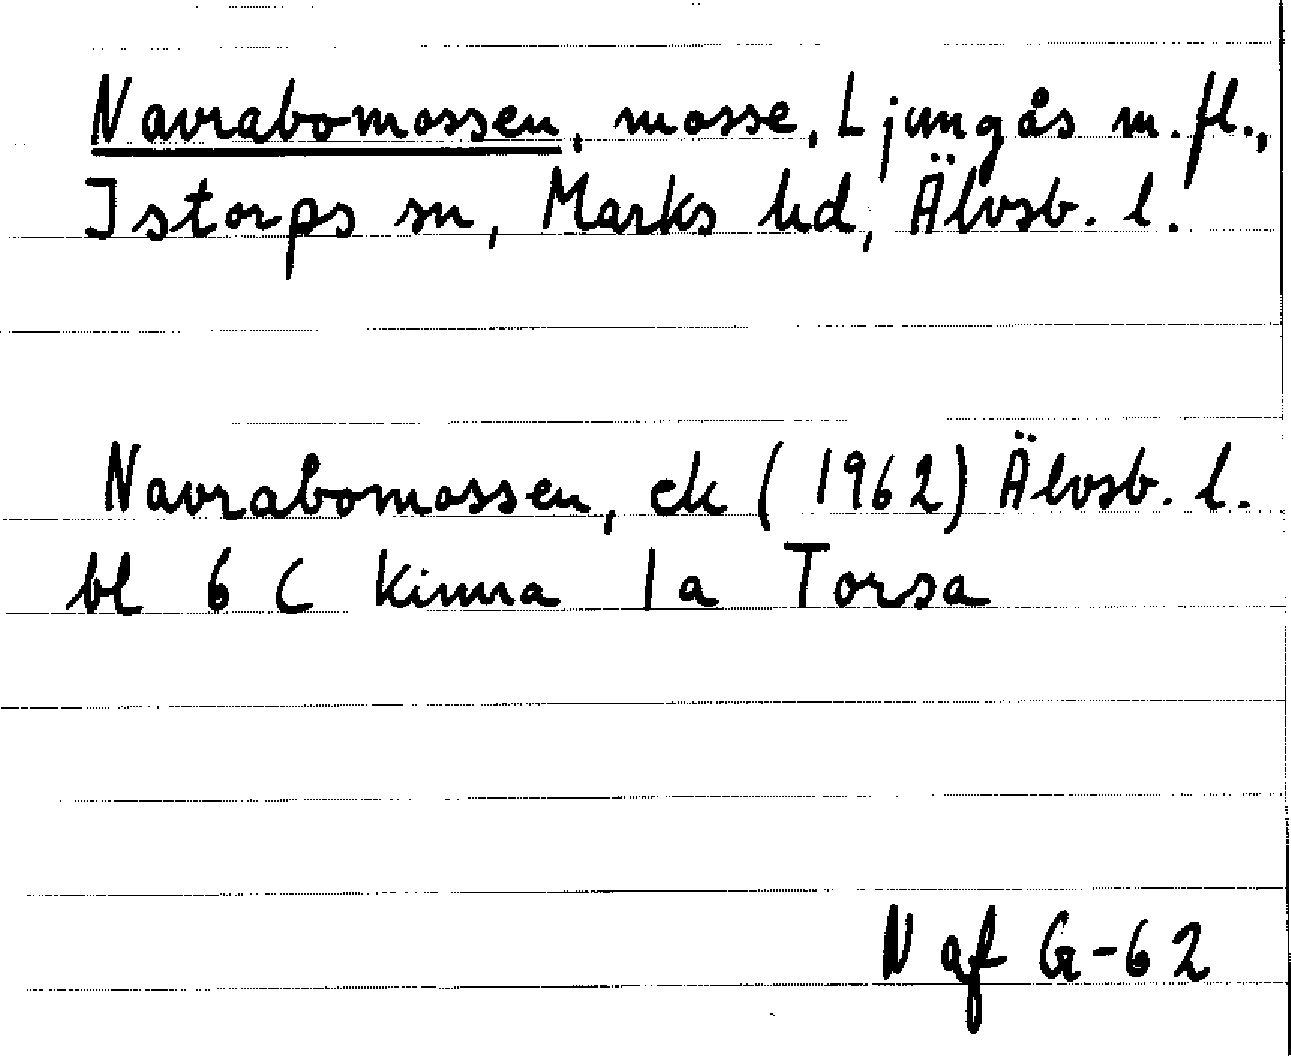 Navrabomossen, mosse, Ljungås m.fl.,
Istorps sn, Marks hd, Älvsb. l.
Navrabomossen, ek (1962) Älvsb. l.
bl 6 C Kinna 1a Torsa
N af G-62